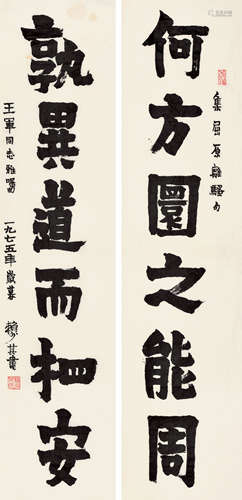 何方圜之能周
集屈原離騷句
孰異道而相安
王軍同志雅囑 一九七五年歲暮 賴少其書